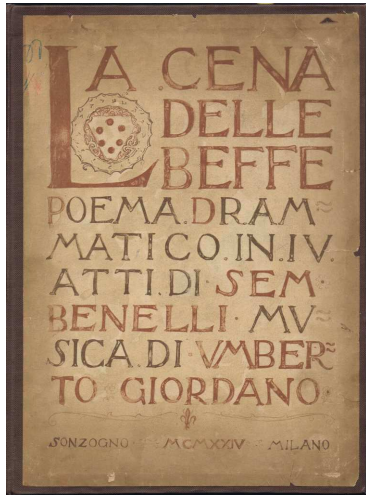 LA CENA
DELLE
BEFFE
POEMA.DRAM=
MATICO.IN.IV.
ATTI.DI.SEM.
BENELLI.MV=
SICA.DI.VMBER=
TO GIORDANO.
SONZOGNO MCMXXIV MILANO